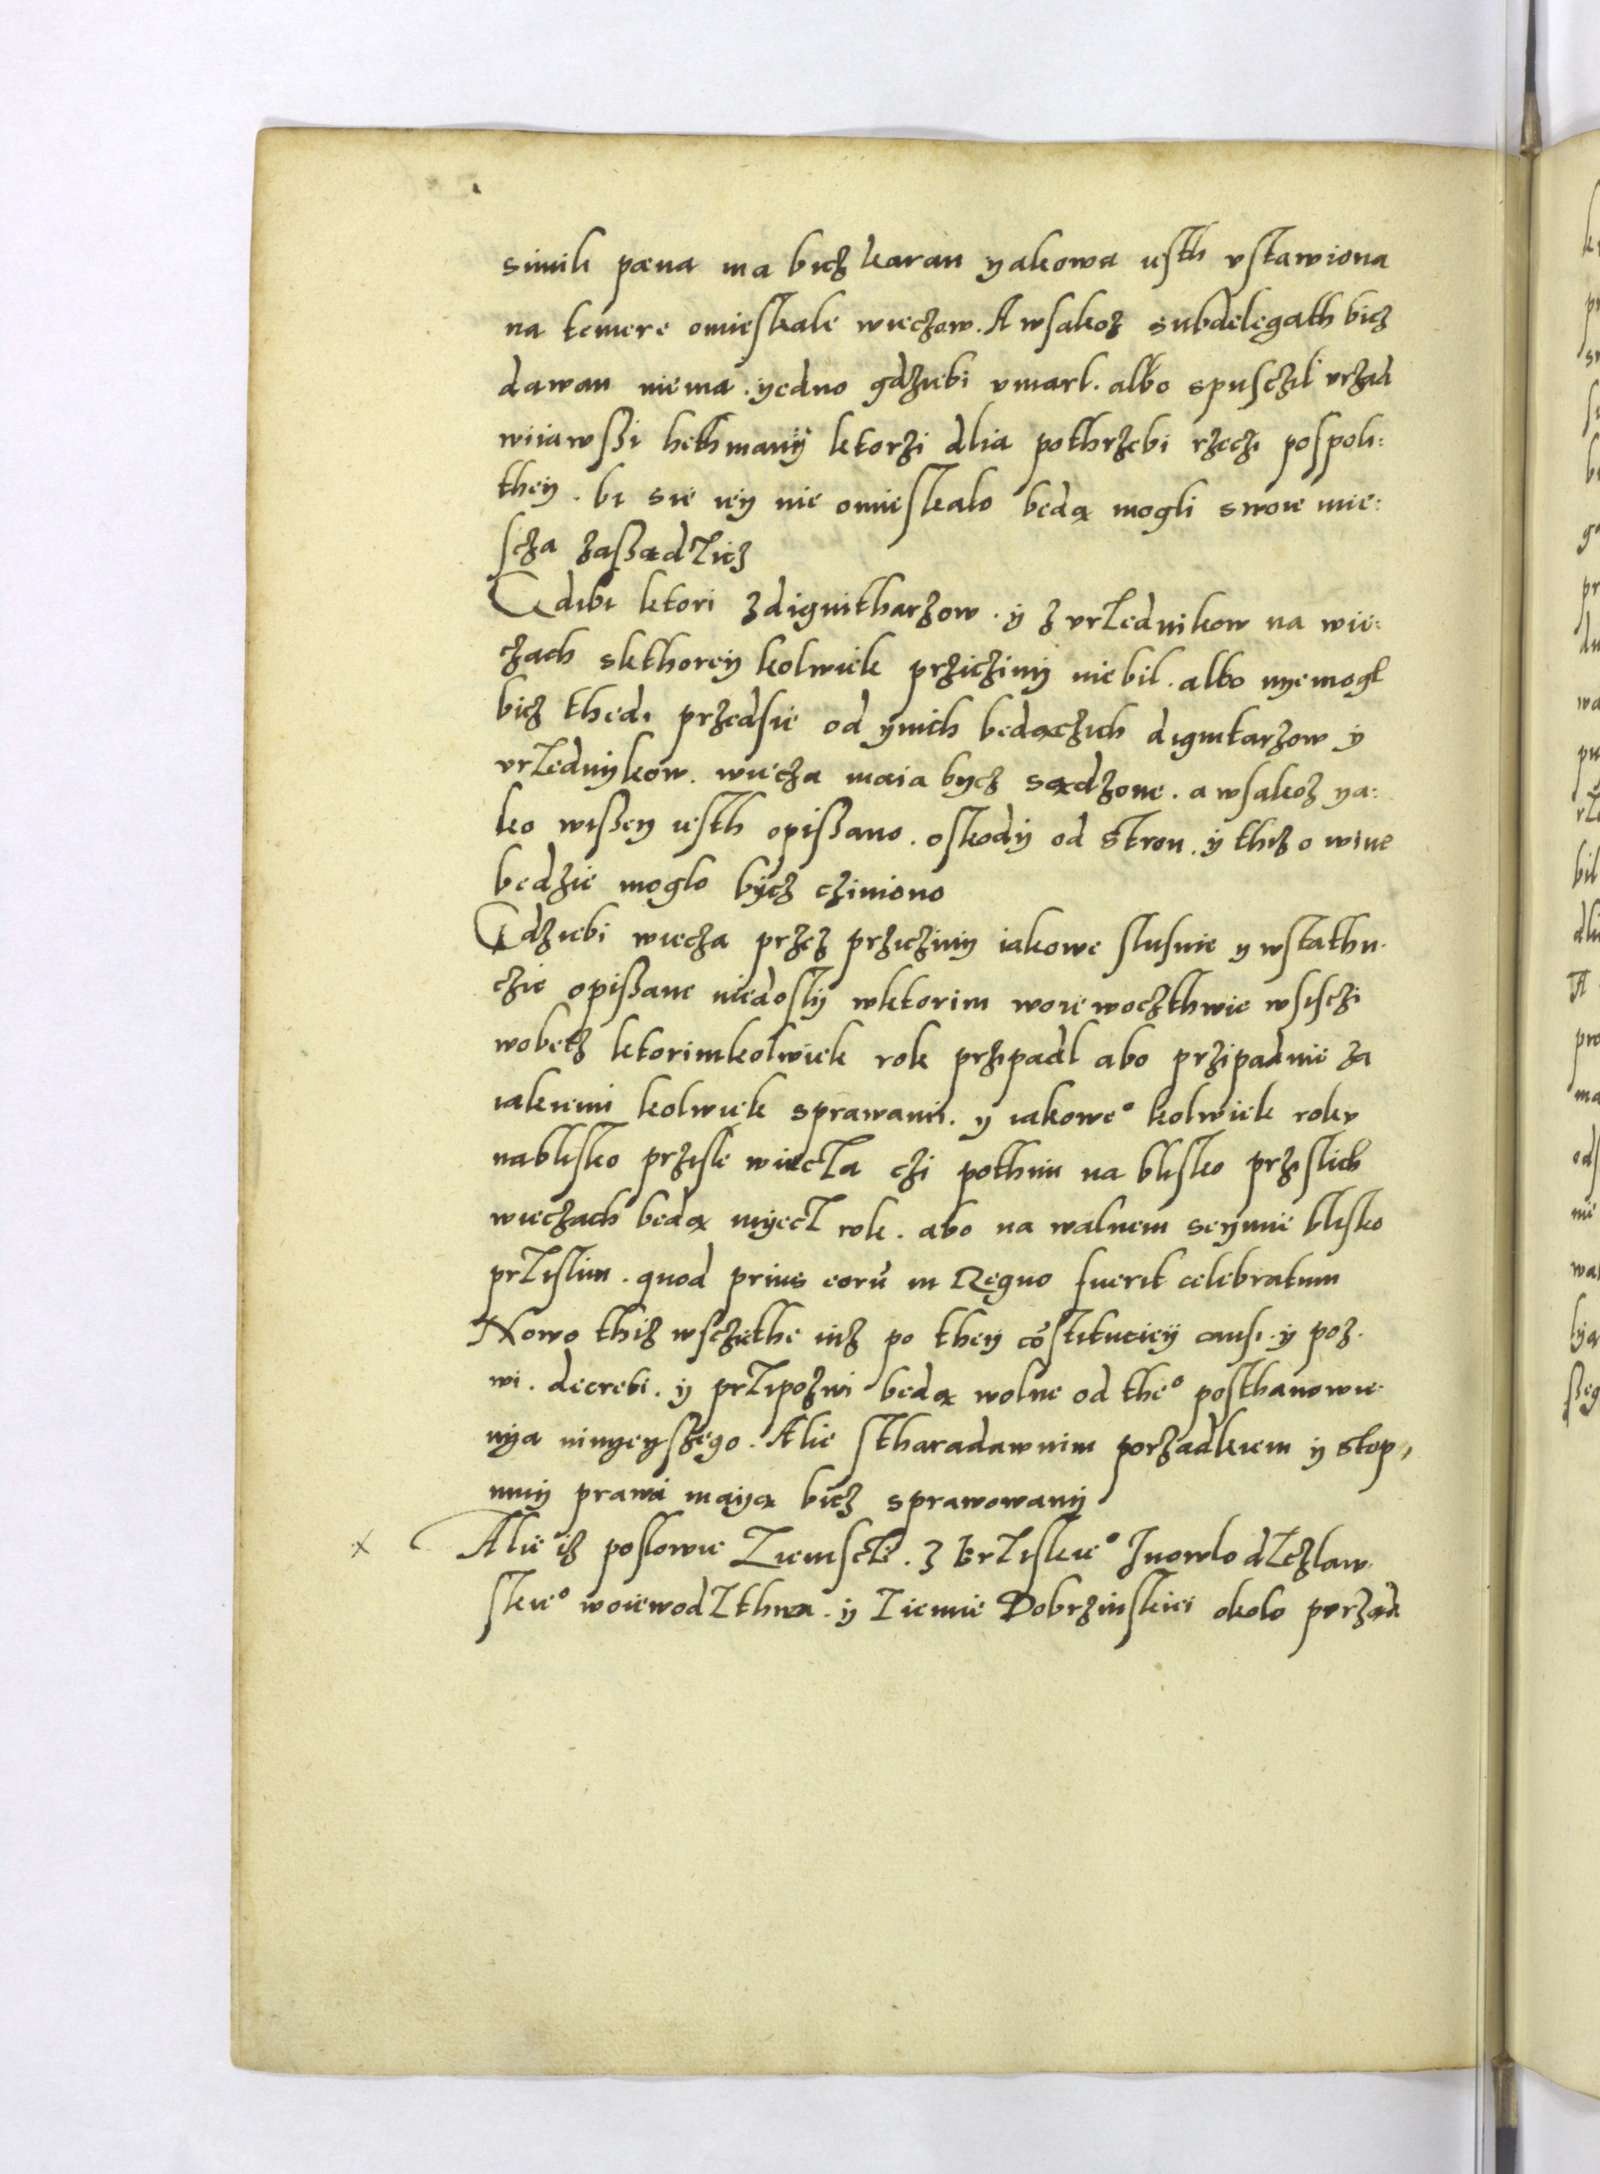 simili pœna ma bicz karan yakowa iesth vstawiona
na temere omieſkale wieczow. A wſakoz subdelegath bicz
dawan niema. yedno gdziebi vmarl. albo spuſczil vrząd
wiiawſzi hethmanÿ ktorzi dlia pothrzebi rzeczi poſpoli:
theÿ. bi sie ieÿ nie omieſkalo bedą mogli swoie mie:
ſcza zaſzadzicz
Gdibi ktori z dignitharzow. ÿ z vrzednikow na wie:
czach skthoreÿ kolwiek prziczinÿ nie bil. albo nyemogl
bicz thedi przedſie od ÿnich bedączich dignitarzow ÿ
vrzednÿkow. wiecza maia bycz sądzone. a wſakoz ya:
ko wiſzey ieſth opiſzano. oſkodÿ od Stron. ÿ thez o wine
bedzie moglo bÿcz cziniono
Gdziebi wiecza przez prziczinÿ iakowe sluſnie y wſtathu
czie opiſzane niedoſlÿ wktorim woiewoczthwie wſiſczi
wobetz ktorimkolwiek rok przipadl abo przipadnie za
iakiemi kolwiek sprawami. y iakoweº kolwiek rokv
nabliſko prziſle wiecza czi pothim na bliſko prziſlich
wieczach bedą myecz rok. abo na walnem seÿmie bliſko
prziſlim. quod prius eorū in Regno fuerit celebratum
Nowo thiz wſczethe iuz po theÿ cōſtitucieÿ cauſi. ÿ poz
wi. decreti. ÿ przipozwi bedą wolne od theº poſthanowie
nÿa ninyeyſzego. Alie ſtharadawnim porzadkiem ÿ Stop,
nmÿ prawa maÿą bicz sprawowanÿ
Alie iz poſlowie Ziemſcze. z Brziſkieº Jnowlodzczlaw
ſkieº woiewodzthwa. ÿ Ziemie Dobrzinſkiei okolo pvrząd